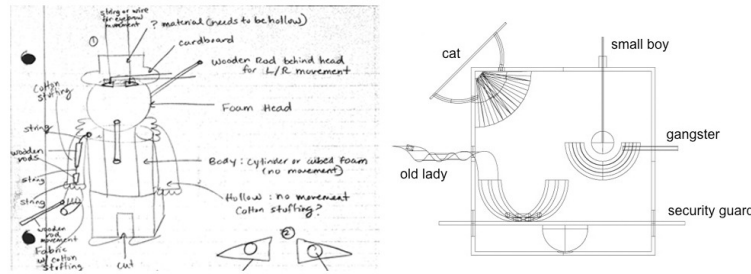 string or wire
for eyebrow
movement
? material (needs to be hollow)
①
cardboard
Wooden Rod behind head
for L/R movement
Cotton
stuffing
Foam Head
string
wooden
rods
Body: Cylinder or cubed Foam
(no movement)
string
string
Hollow: no movement
Cotton stuffing?
wooden
rod
movement
Fabric
w/ cotton
stuffing
cut
②
cat
small boy
gangster
old lady
security guard